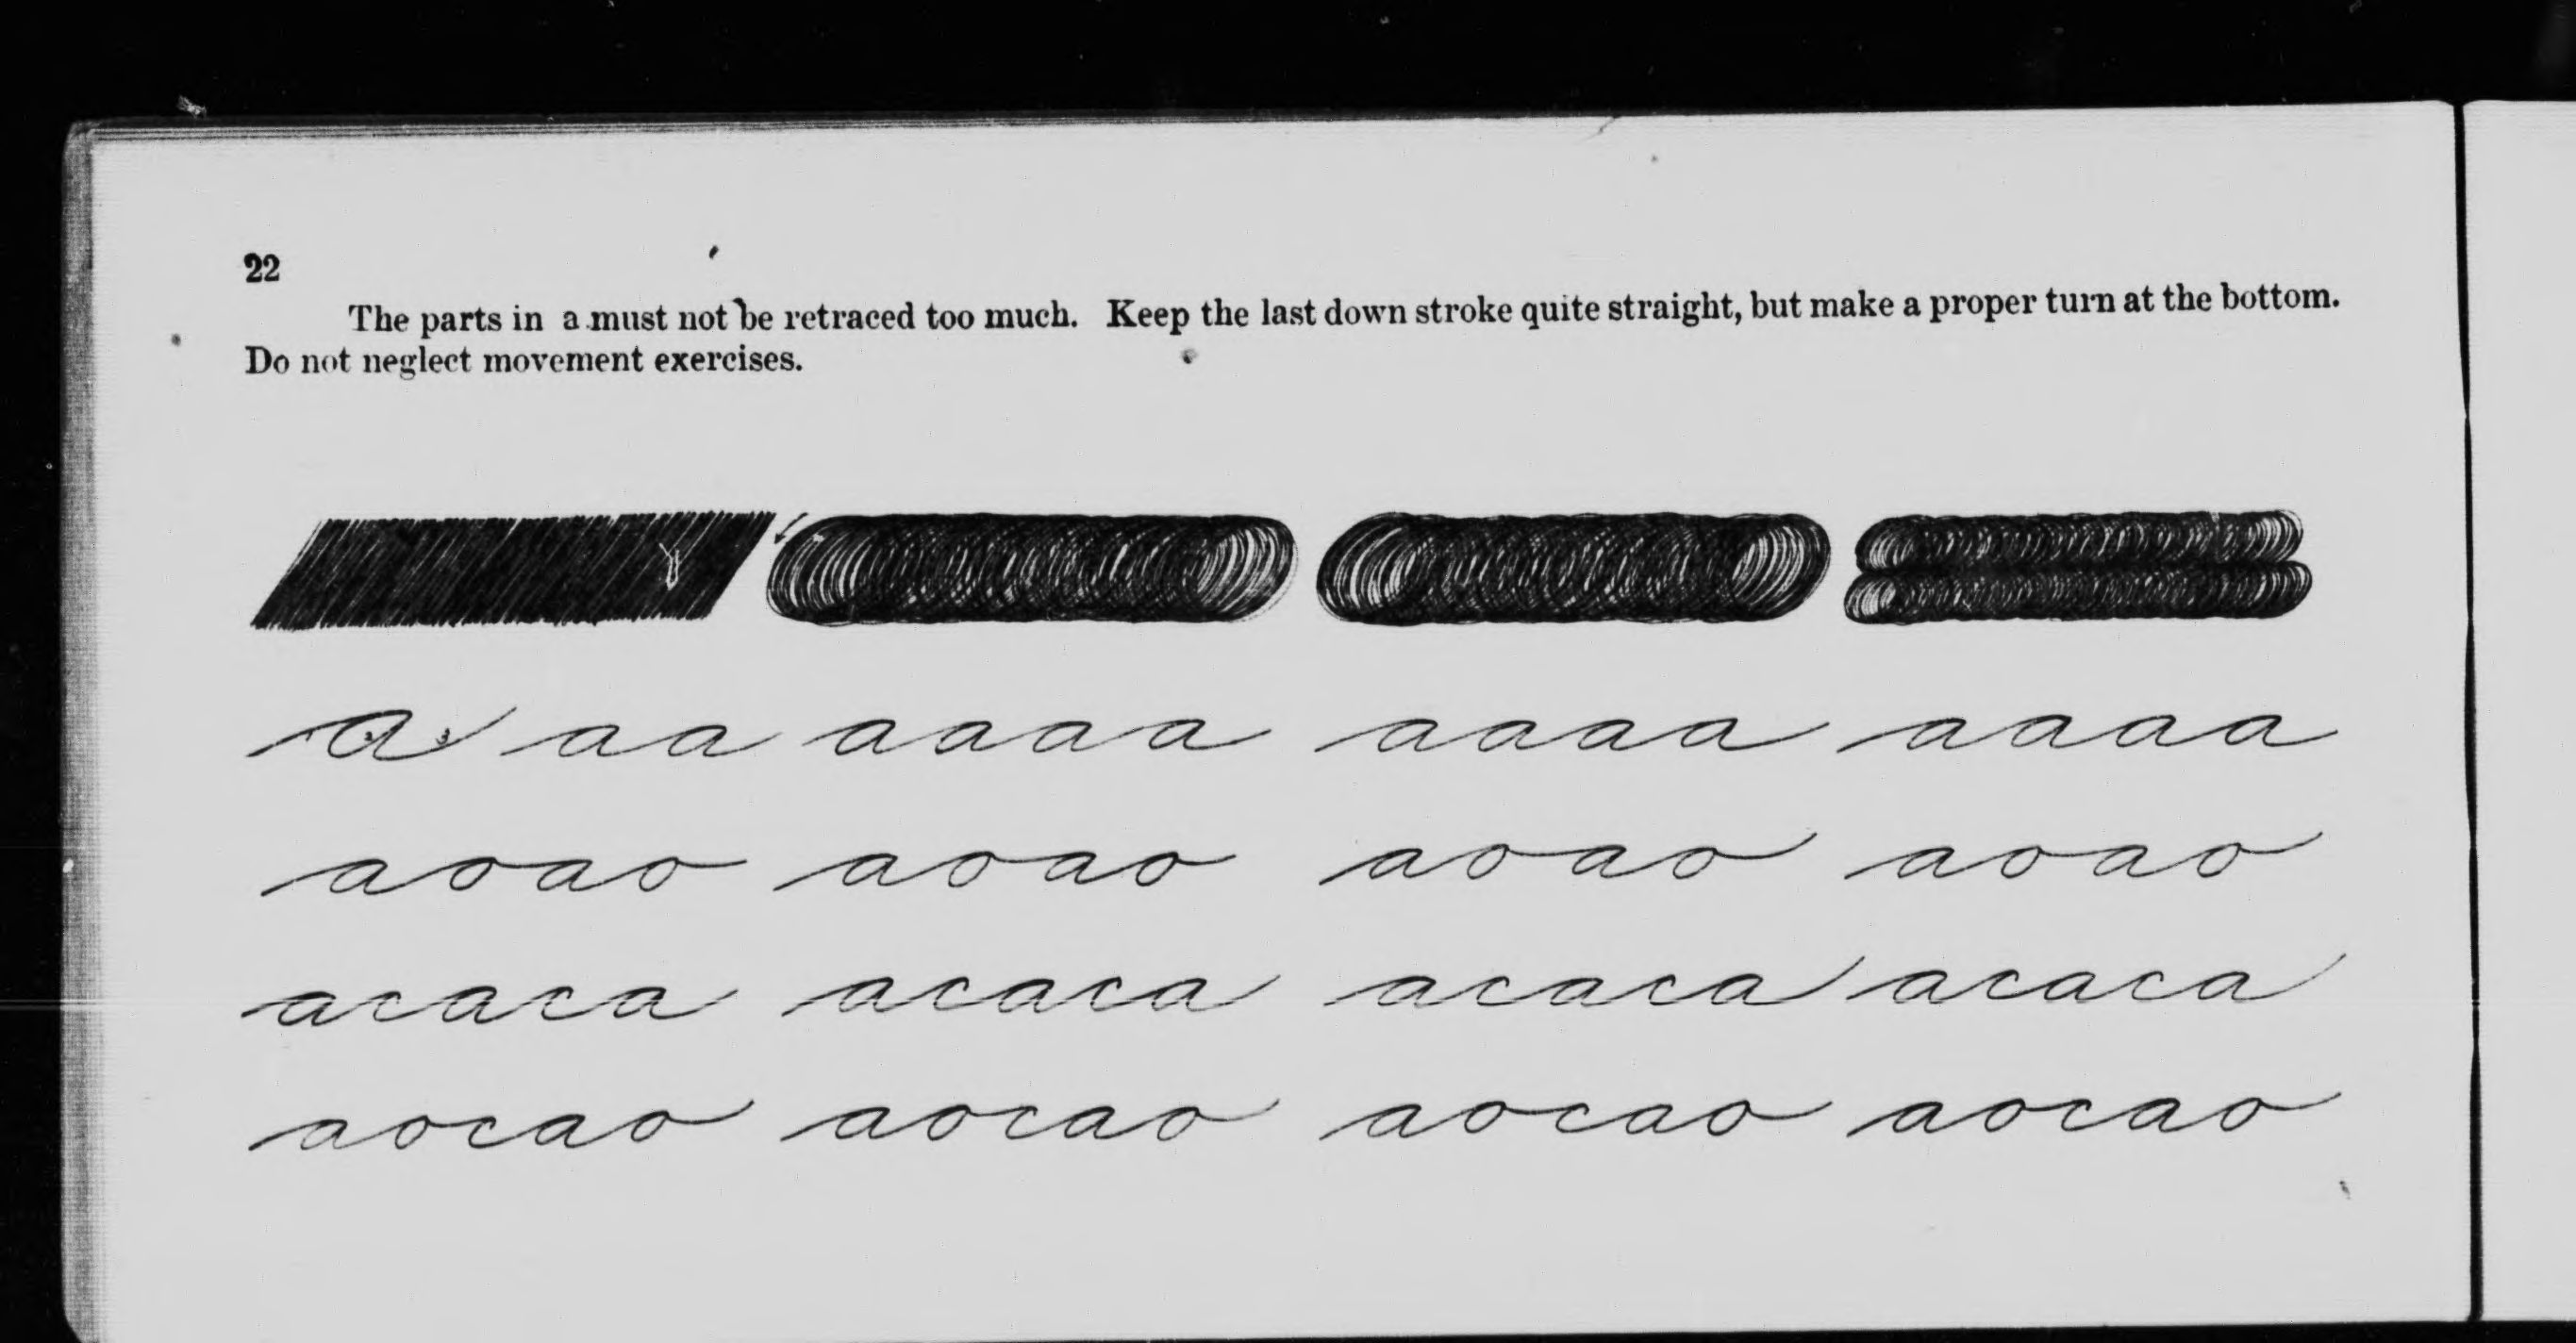 22
The parts in a must not be retraced too much. Keep the last down stroke quite straight, but make a proper turn at the bottom.
Do not neglect movement exercises.
a aa aaaa aaaa aaaa
aoao aoao aoao aoao
acaca acaca acaca acaca
aocao aocao aocao aocao